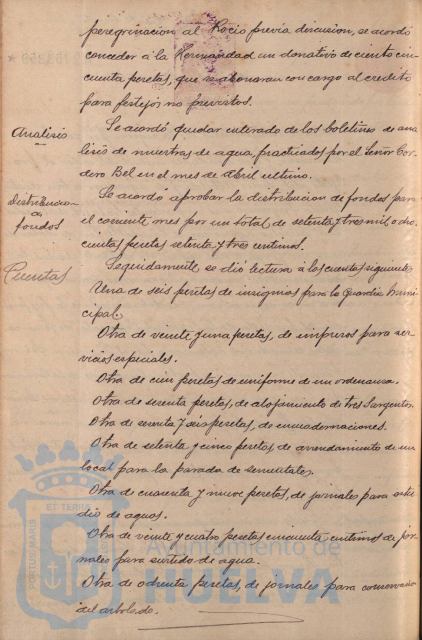 peregrinacion al Rocio previa discusion, se acordó
conceder á la Hermandad un donativo de ciento cin-
cuenta pesetas, que se abonaran con cargo al credito
para festejos no previstos.
Analisis
Se acordó quedar enterado de los boletines de aná-
lisis de muestras de agua, practicados por el Señor Cor-
dero Bel en el mes de Abril ultimo.
Distribucion
de
fondos
Se acordó aprobar la distribucion de fondos para
el corriente mes por un total de setenta y tres mil ocho-
cientas pesetas setenta y tres centimos.
Cuentas
Seguidamente se dió lectura á las cuentas siguientes
Una de seis pesetas de insignias para la Guardia Muni-
cipal.
Otra de veinte y una pesetas, de impresos para ser-
vicios especiales.
Otra de cien pesetas de uniforme de un ordenanza.
Otra de sesenta pesetas, de alojamiento de tres Sargentos.
Otra de sesenta y seis pesetas, de encuadernaciones.
Otra de setenta y cinco pesetas, de arrendamiento de un
local para la parada de sementales.
Otra de cuarenta y nueve pesetas, de jornales para estu-
dio de aguas.
Otra de veinte y cuatro pesetas cincuenta centimos de jor-
nales para surtido de agua.
Otra de ochenta pesetas, de jornales para conservacion
del arbolado.
PORTUS MARIS
ET TERRÆ
Ayuntamiento de
HUELVA